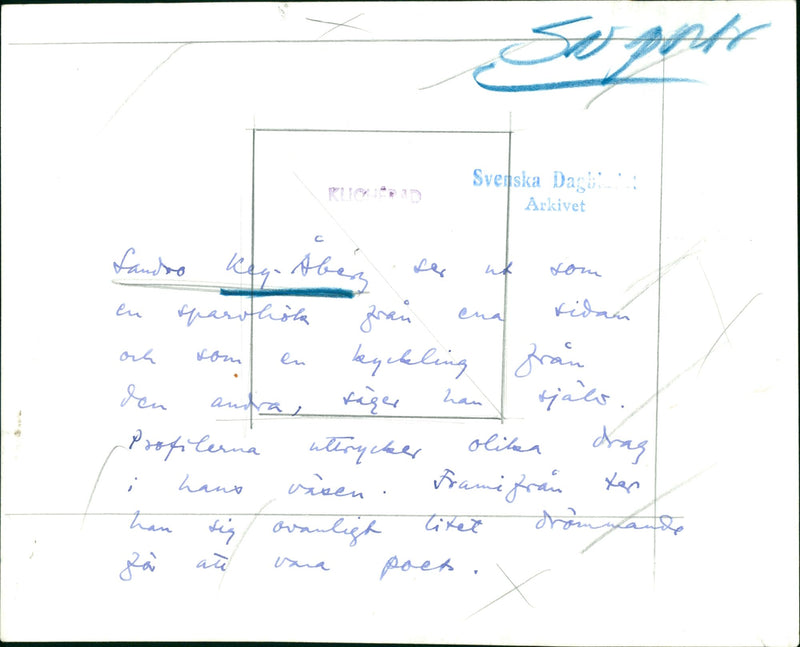 Sv portr
KLICHERAD
Svenska Dagbladet
Arkivet
Sandro Key-Åberg ser ut som
en sparvhök från ena sidan
och som en kyckling från
den andra, säger han själv.
Profilerna uttrycker olika drag
i hans väsen. Framifrån ter
han sig ovanligt litet drömmande
för att vara poet.